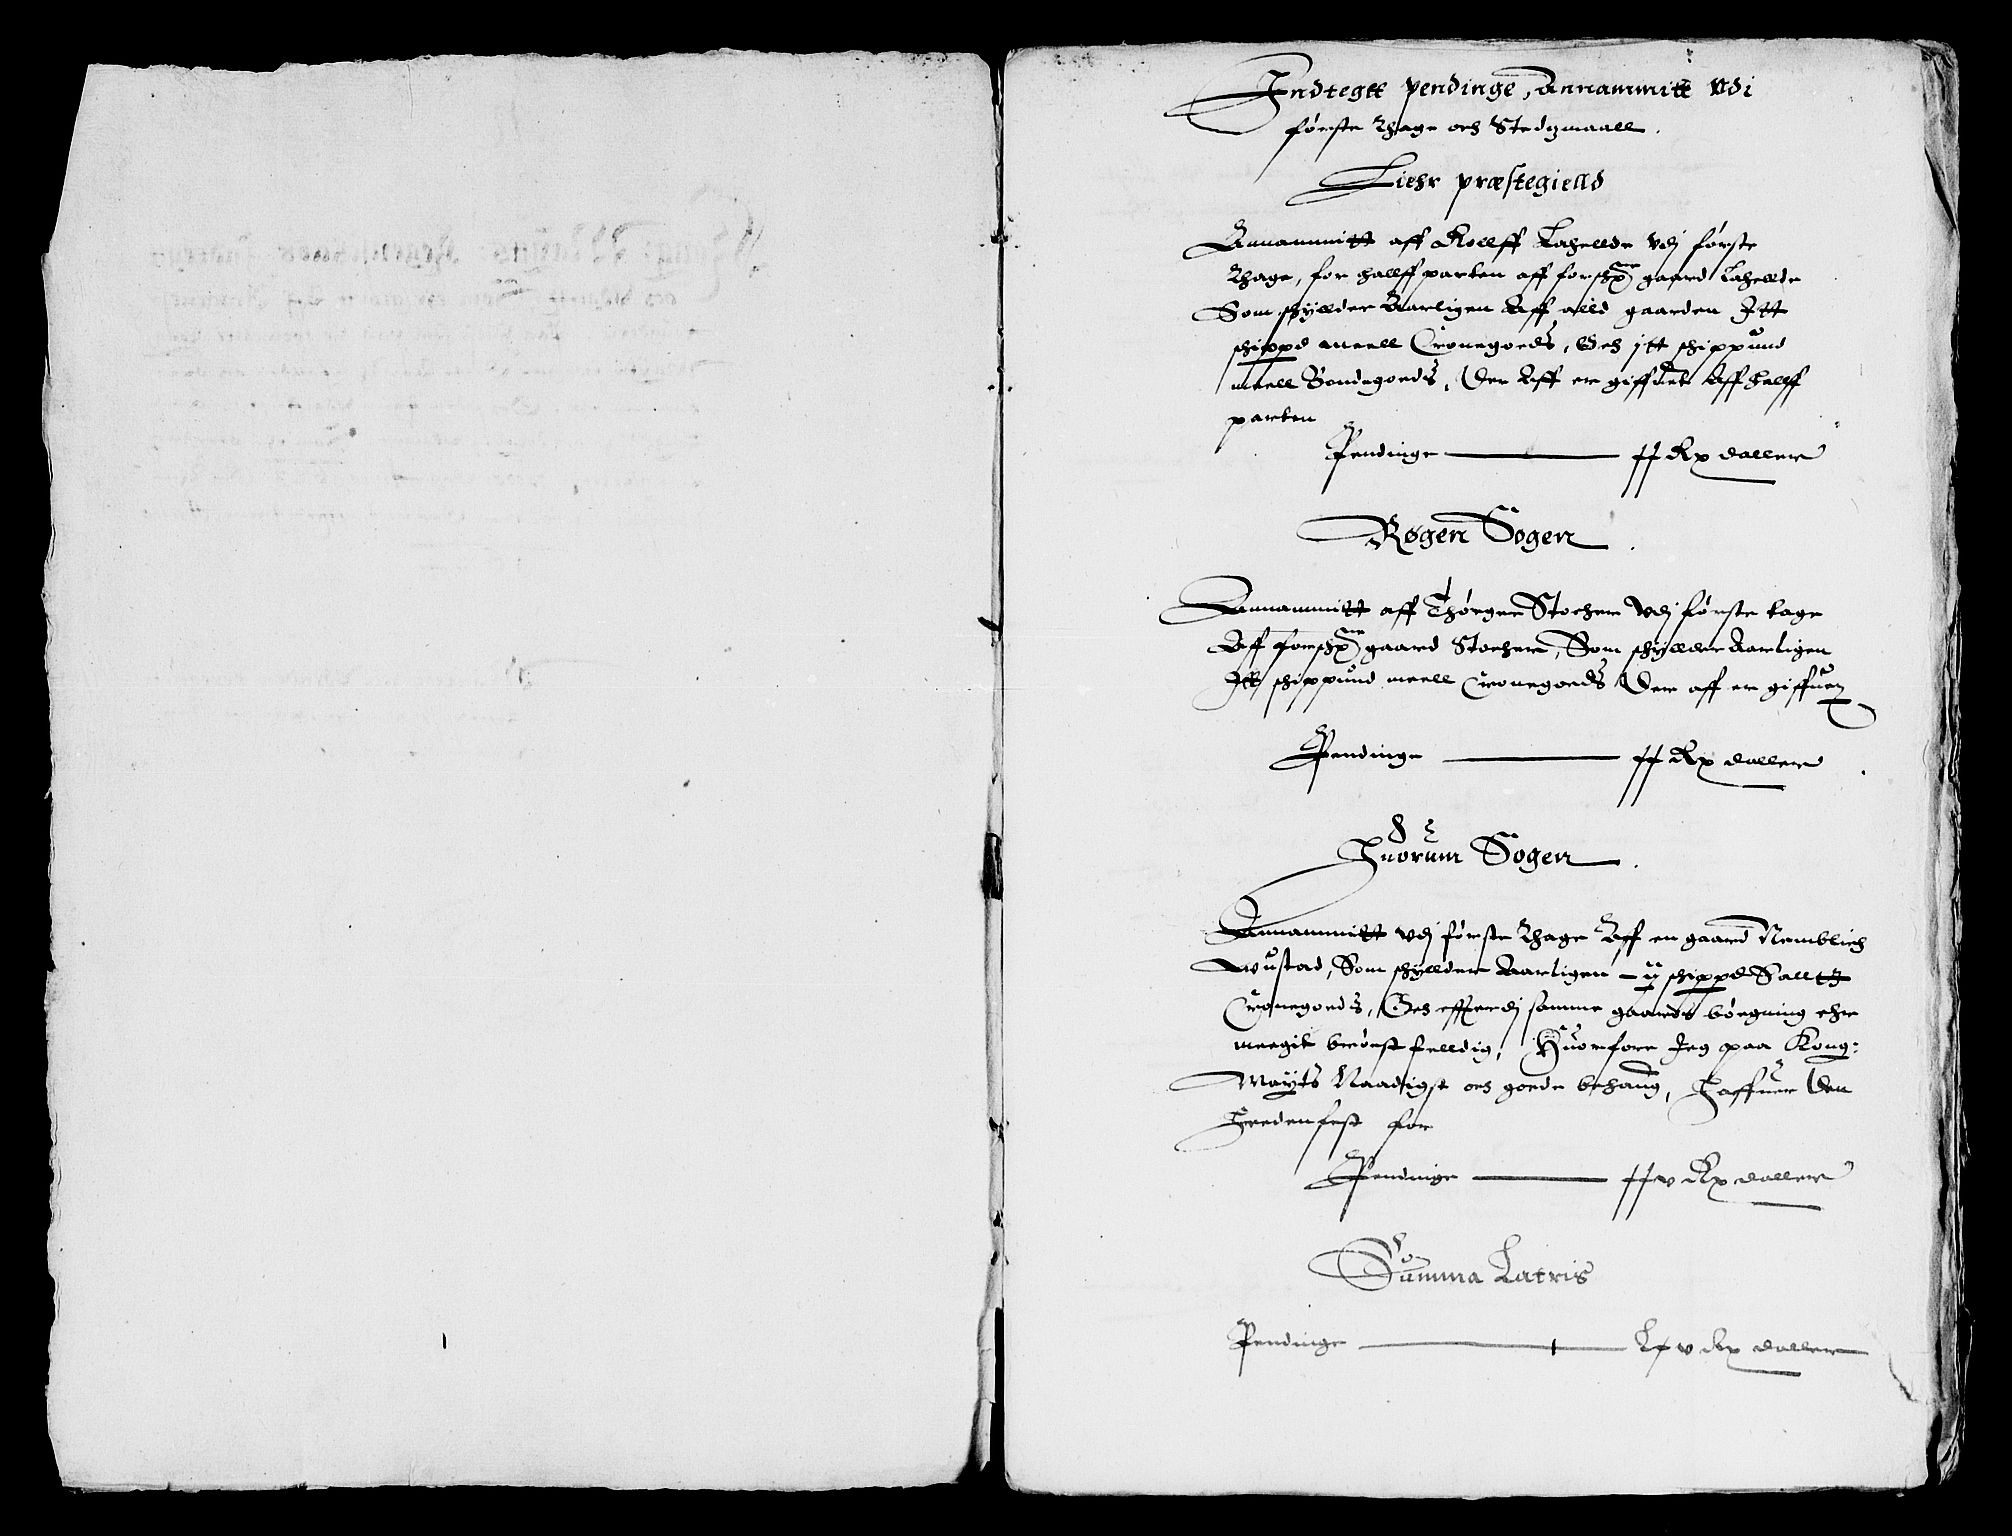 Indtegtt pendinge, Annammitt Udi
første thage och Stedzmaall.
Liehr præstegielld
Annammitt aff Rollff Lahellde vdj første
thage, for hallffparten aff forschr: gaard Lahellde
Som schyllder Aarligen Aff alld gaarden Itt
schippd meell Cronegoeds, Och jtt schippund
meell Bondegoeds, Der Aff er giffuet Aff hallff
parten
Pendinge ——— xx Rx daller
Røgen Sogen
Annammitt aff Thørger Stocher vdj første tage
Aff forschr: gaard Stocher, Som schyllder Aarligen
Itt schippund meell Cronegoeds Der aff er giffuen
Pendinge ——— xx Rx daller
Huorum Sogen
Annammitt vdj første thage Aff en gaard Nemblich
Som schyllder Aarligen – ij schippd Salltz
Cronegoeds, Och efftterdj samme gaards børgning ehr
meegit brøstfelldig, Huorfore Jeg paa Kong:
Mayts Naadigst och goede behaug, Haffuer den
Hredenfest for
Pendinge ——— xxv Rx daller
Summa Latris
Pendinge ——— Lxv Rx daller